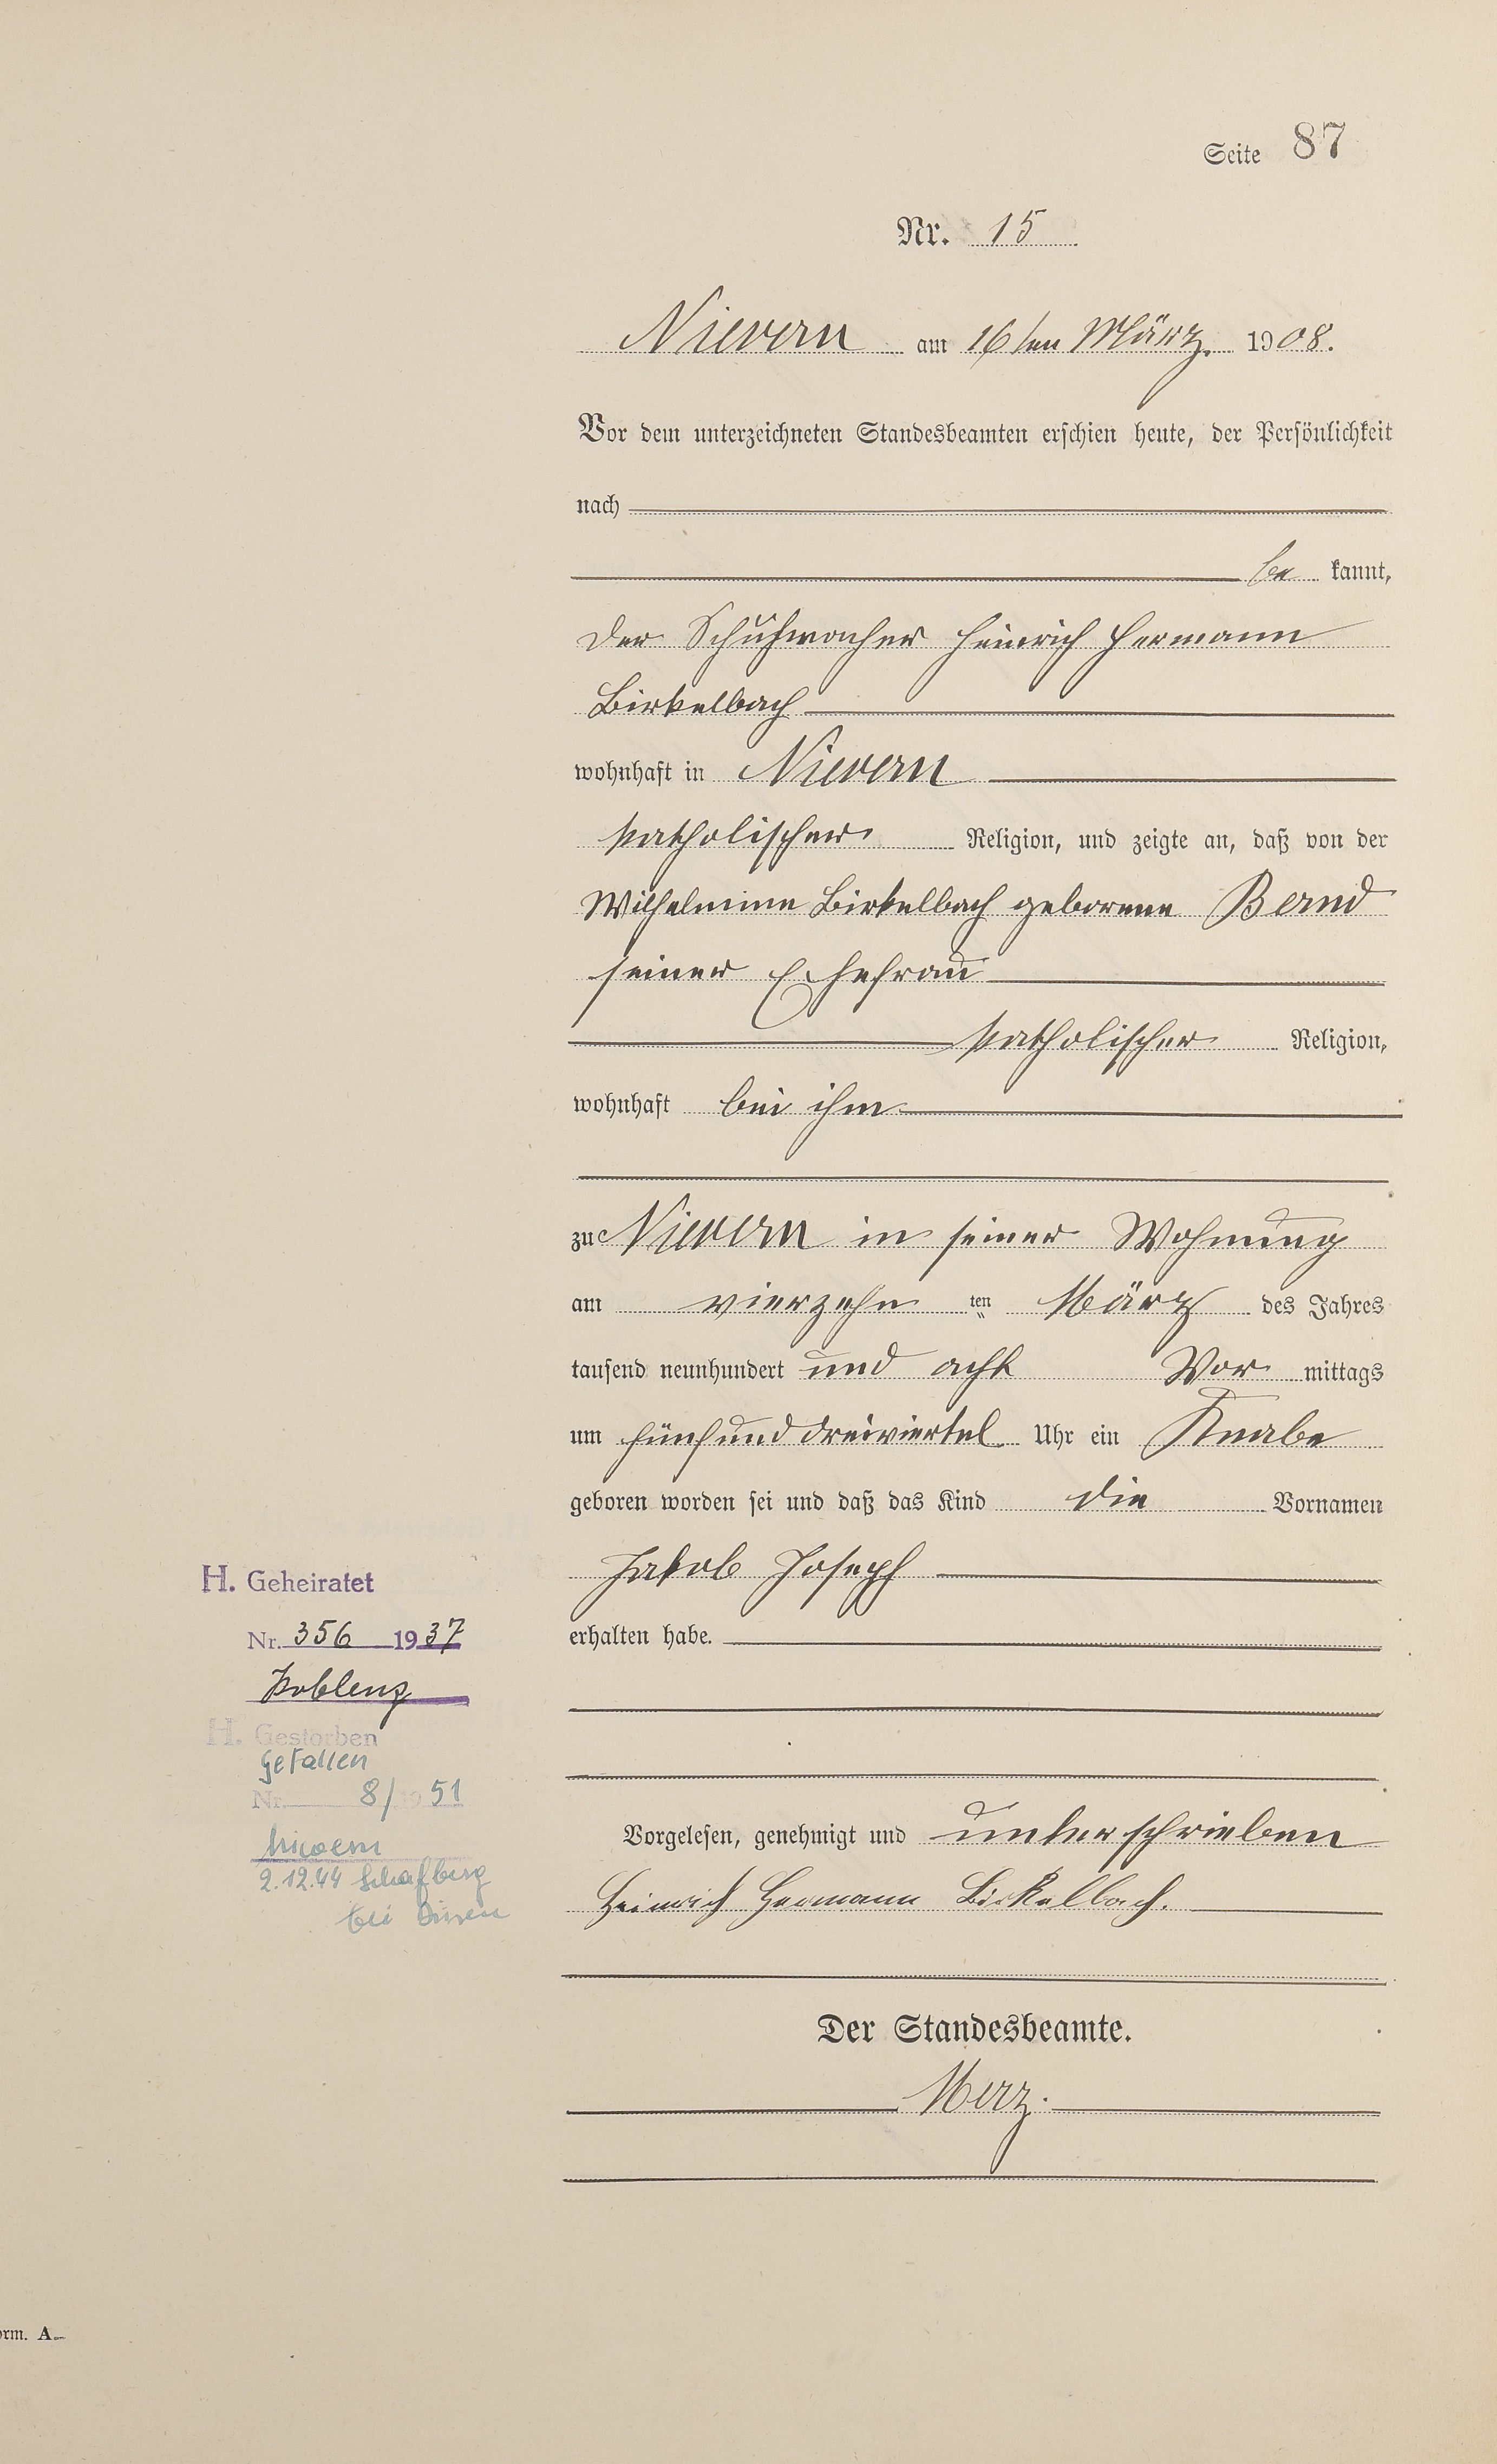 Seite 87
Nr. 15
Nievern am 16ten März. 1908.
Vor dem unterzeichneten Standesbeamten erschien heute, der Persönlichkeit
nach
be kannt,
der Schuhmacher Heinrich Hermann
Birkelbach
wohnhaft in Nievern
katholischer Religion, und zeigte an, daß von der
Wilhelmine Birkelbach geborene Bernd
seiner Ehefrau
katholischer Religion,
wohnhaft bei ihm
zu Nievern in seiner Wohnung
am vierzehn ten März des Jahres
tausend neunhundert und acht Vor mittags
um fünfunddreiviertel Uhr ein Knabe
geboren worden sei und daß das Kind die Vornamen
Jakob Joseph
erhalten habe.
H. Geheiratet
Nr. 356 1937
Koblenz
H. Gestorben
gefallen
Nr. 8/1951
Nievern
2.12.44 Schafberg
bei Düren
Vorgelesen, genehmigt und unterschrieben
Heinrich Hermann Birkelbach.
Der Standesbeamte.
Merz.
orm. A.